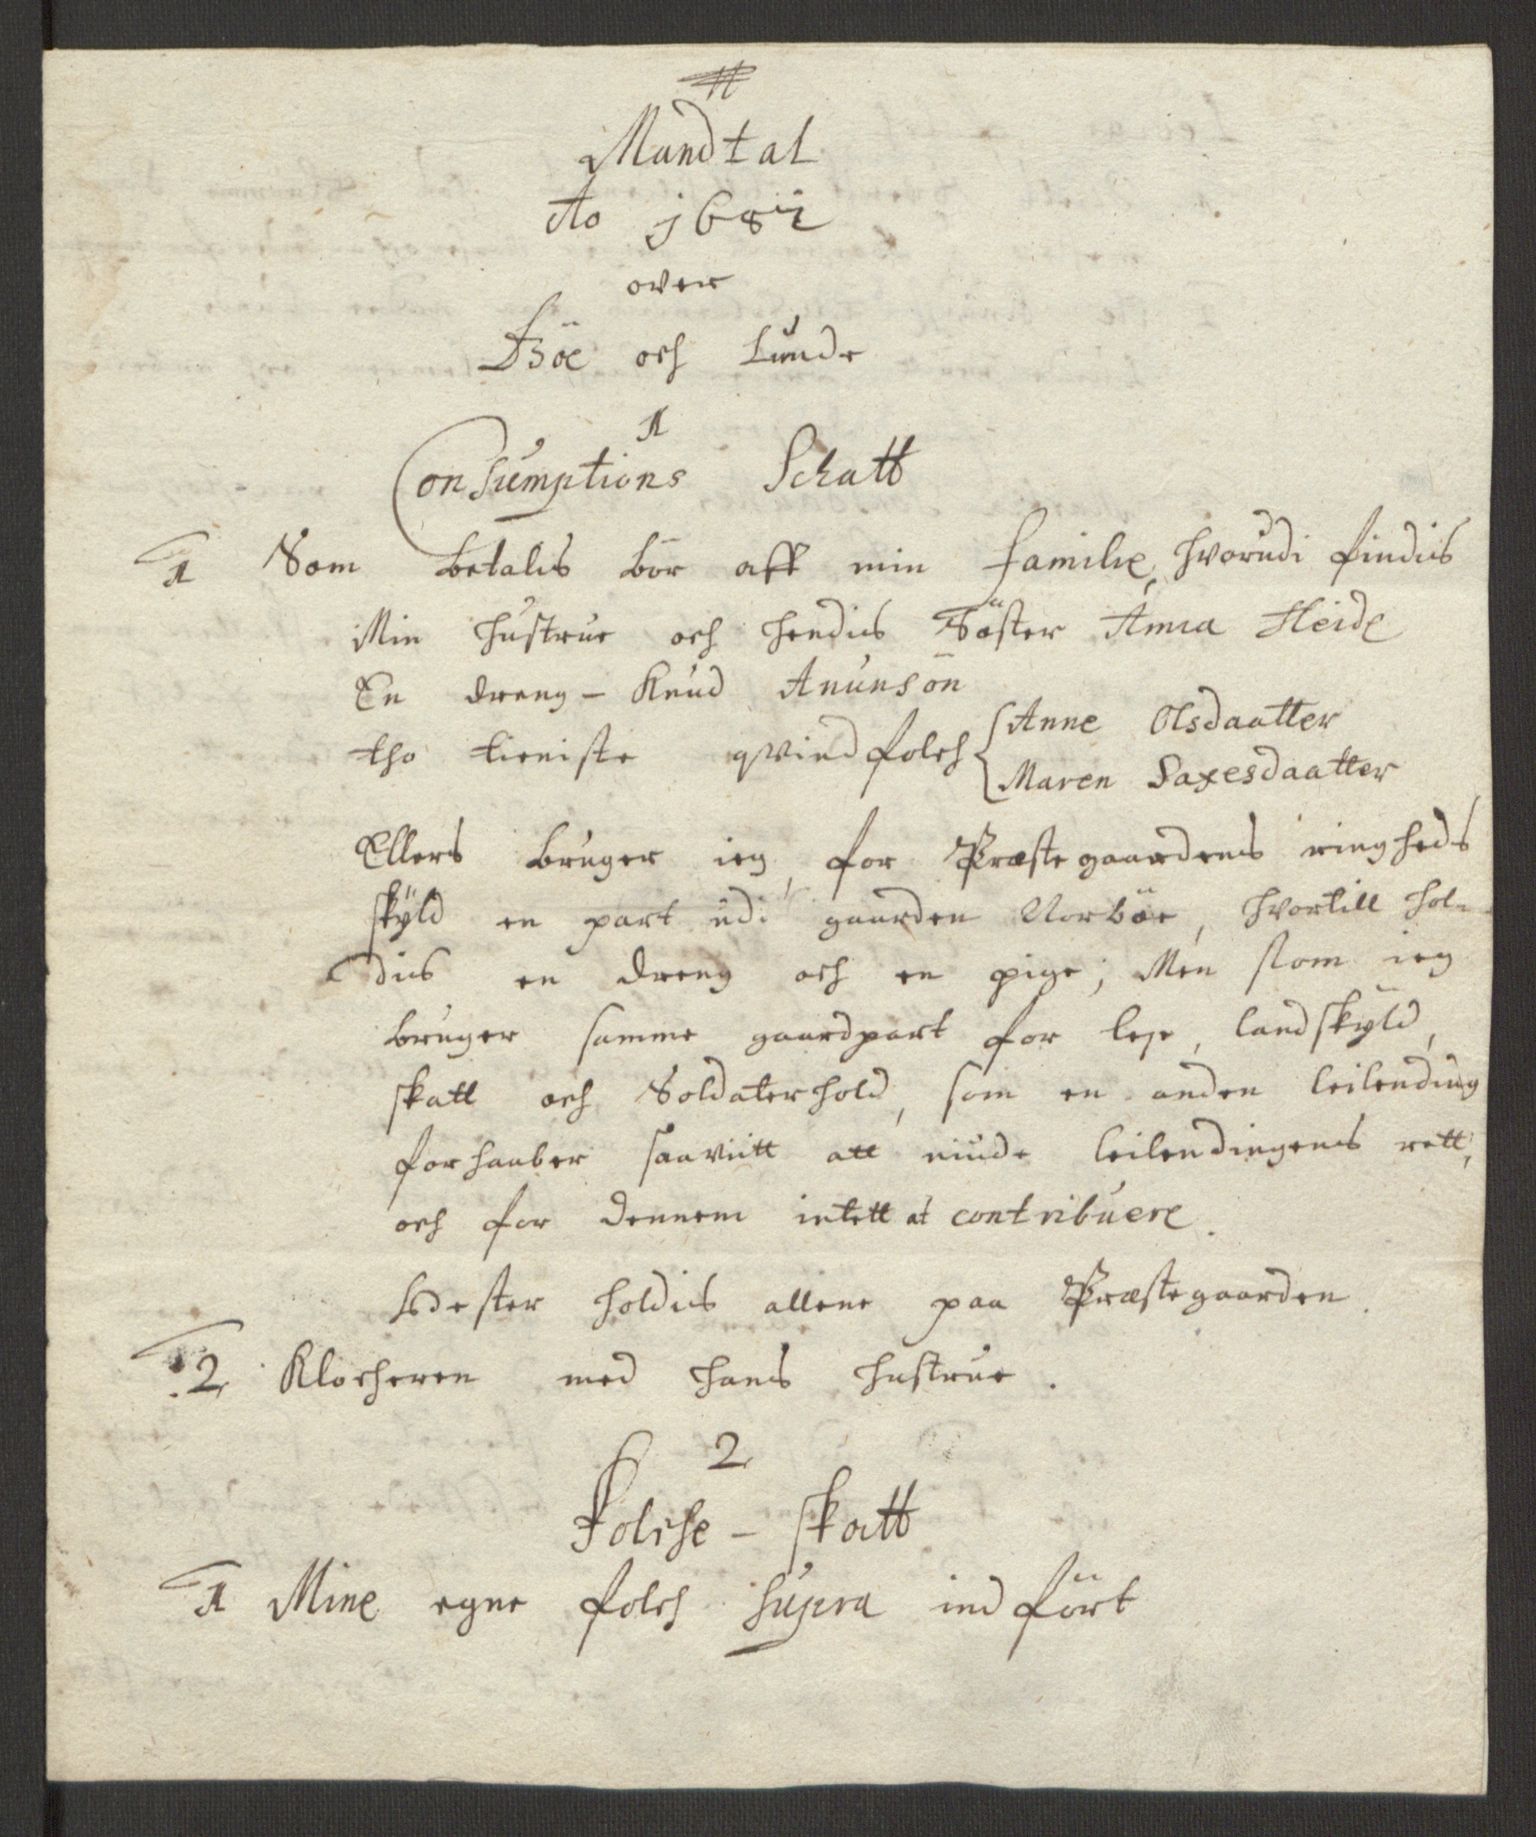 Mandtal
Ao 1682
over
Böe och Lunde
1
Consumptions Schatt
1 Som betalis bör aff min familie, hvorudi findis
Min hustrue och hendis Söster Anna Heide
En dreng - Knud Anunsön
tho tieniste qvindfolch { Anne Olsdaatter
Maren Saxesdaatter
Ellers bruger ieg, for Præstegaardens ringheds
skÿld en part udi gaarden Norböe, hvortill hol-
dis en dreng och en pige; Men som ieg
bruger samme gaardpart for leje, landskÿld,
skatt och Soldaterhold, som en anden leilending
forhaaber saaviitt att niude leilendingens rett,
och for dennem intett at contribuere.
Hester holdis allene paa Præstegaarden.
2 Klocheren med hans hustrue.
2
Folche - skatt
1 Mine egne folch supra indfört